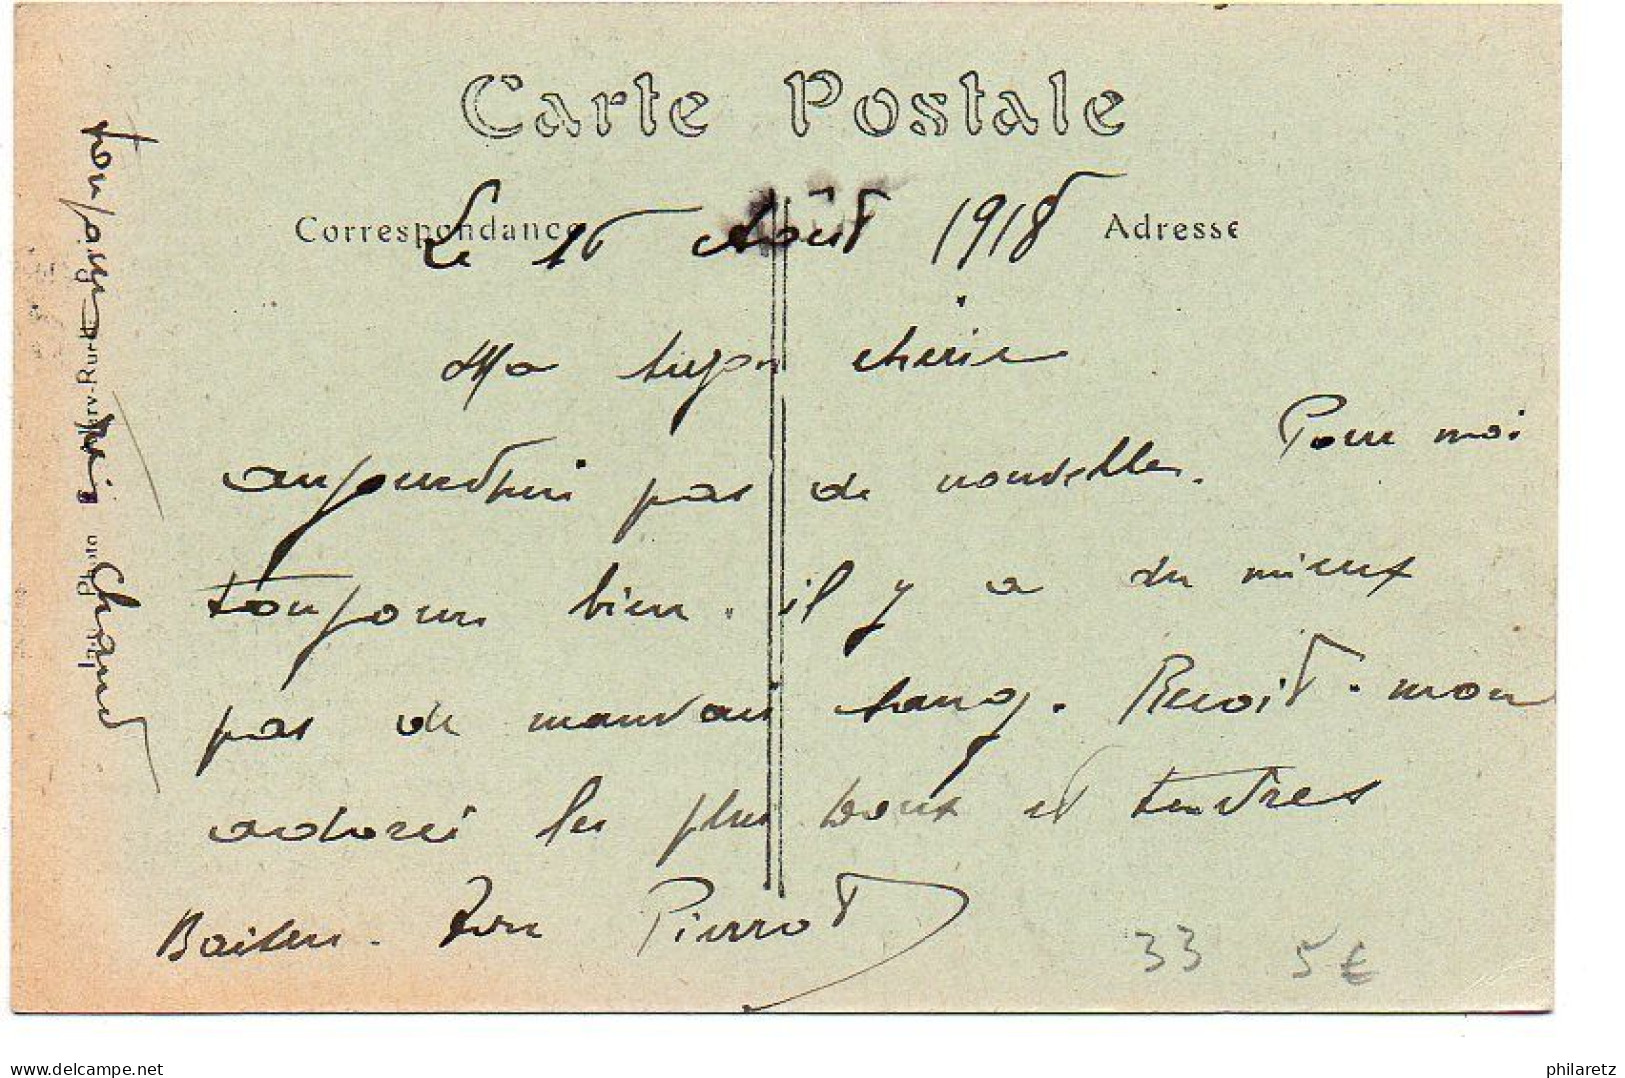 Carte Postale
Correspondance
Adresse
Le 16 Août 1918
Ma chérie
aujourd'hui pas de nouvelles. Pour moi
toujours bien. il y a du mieux
pas de mauvais sang. Reçoit. mon
adorée les plus doux et tendres
Baisers. Ton Pierrot
toujours très chaud
33 5€
delcampe.net
philaretz